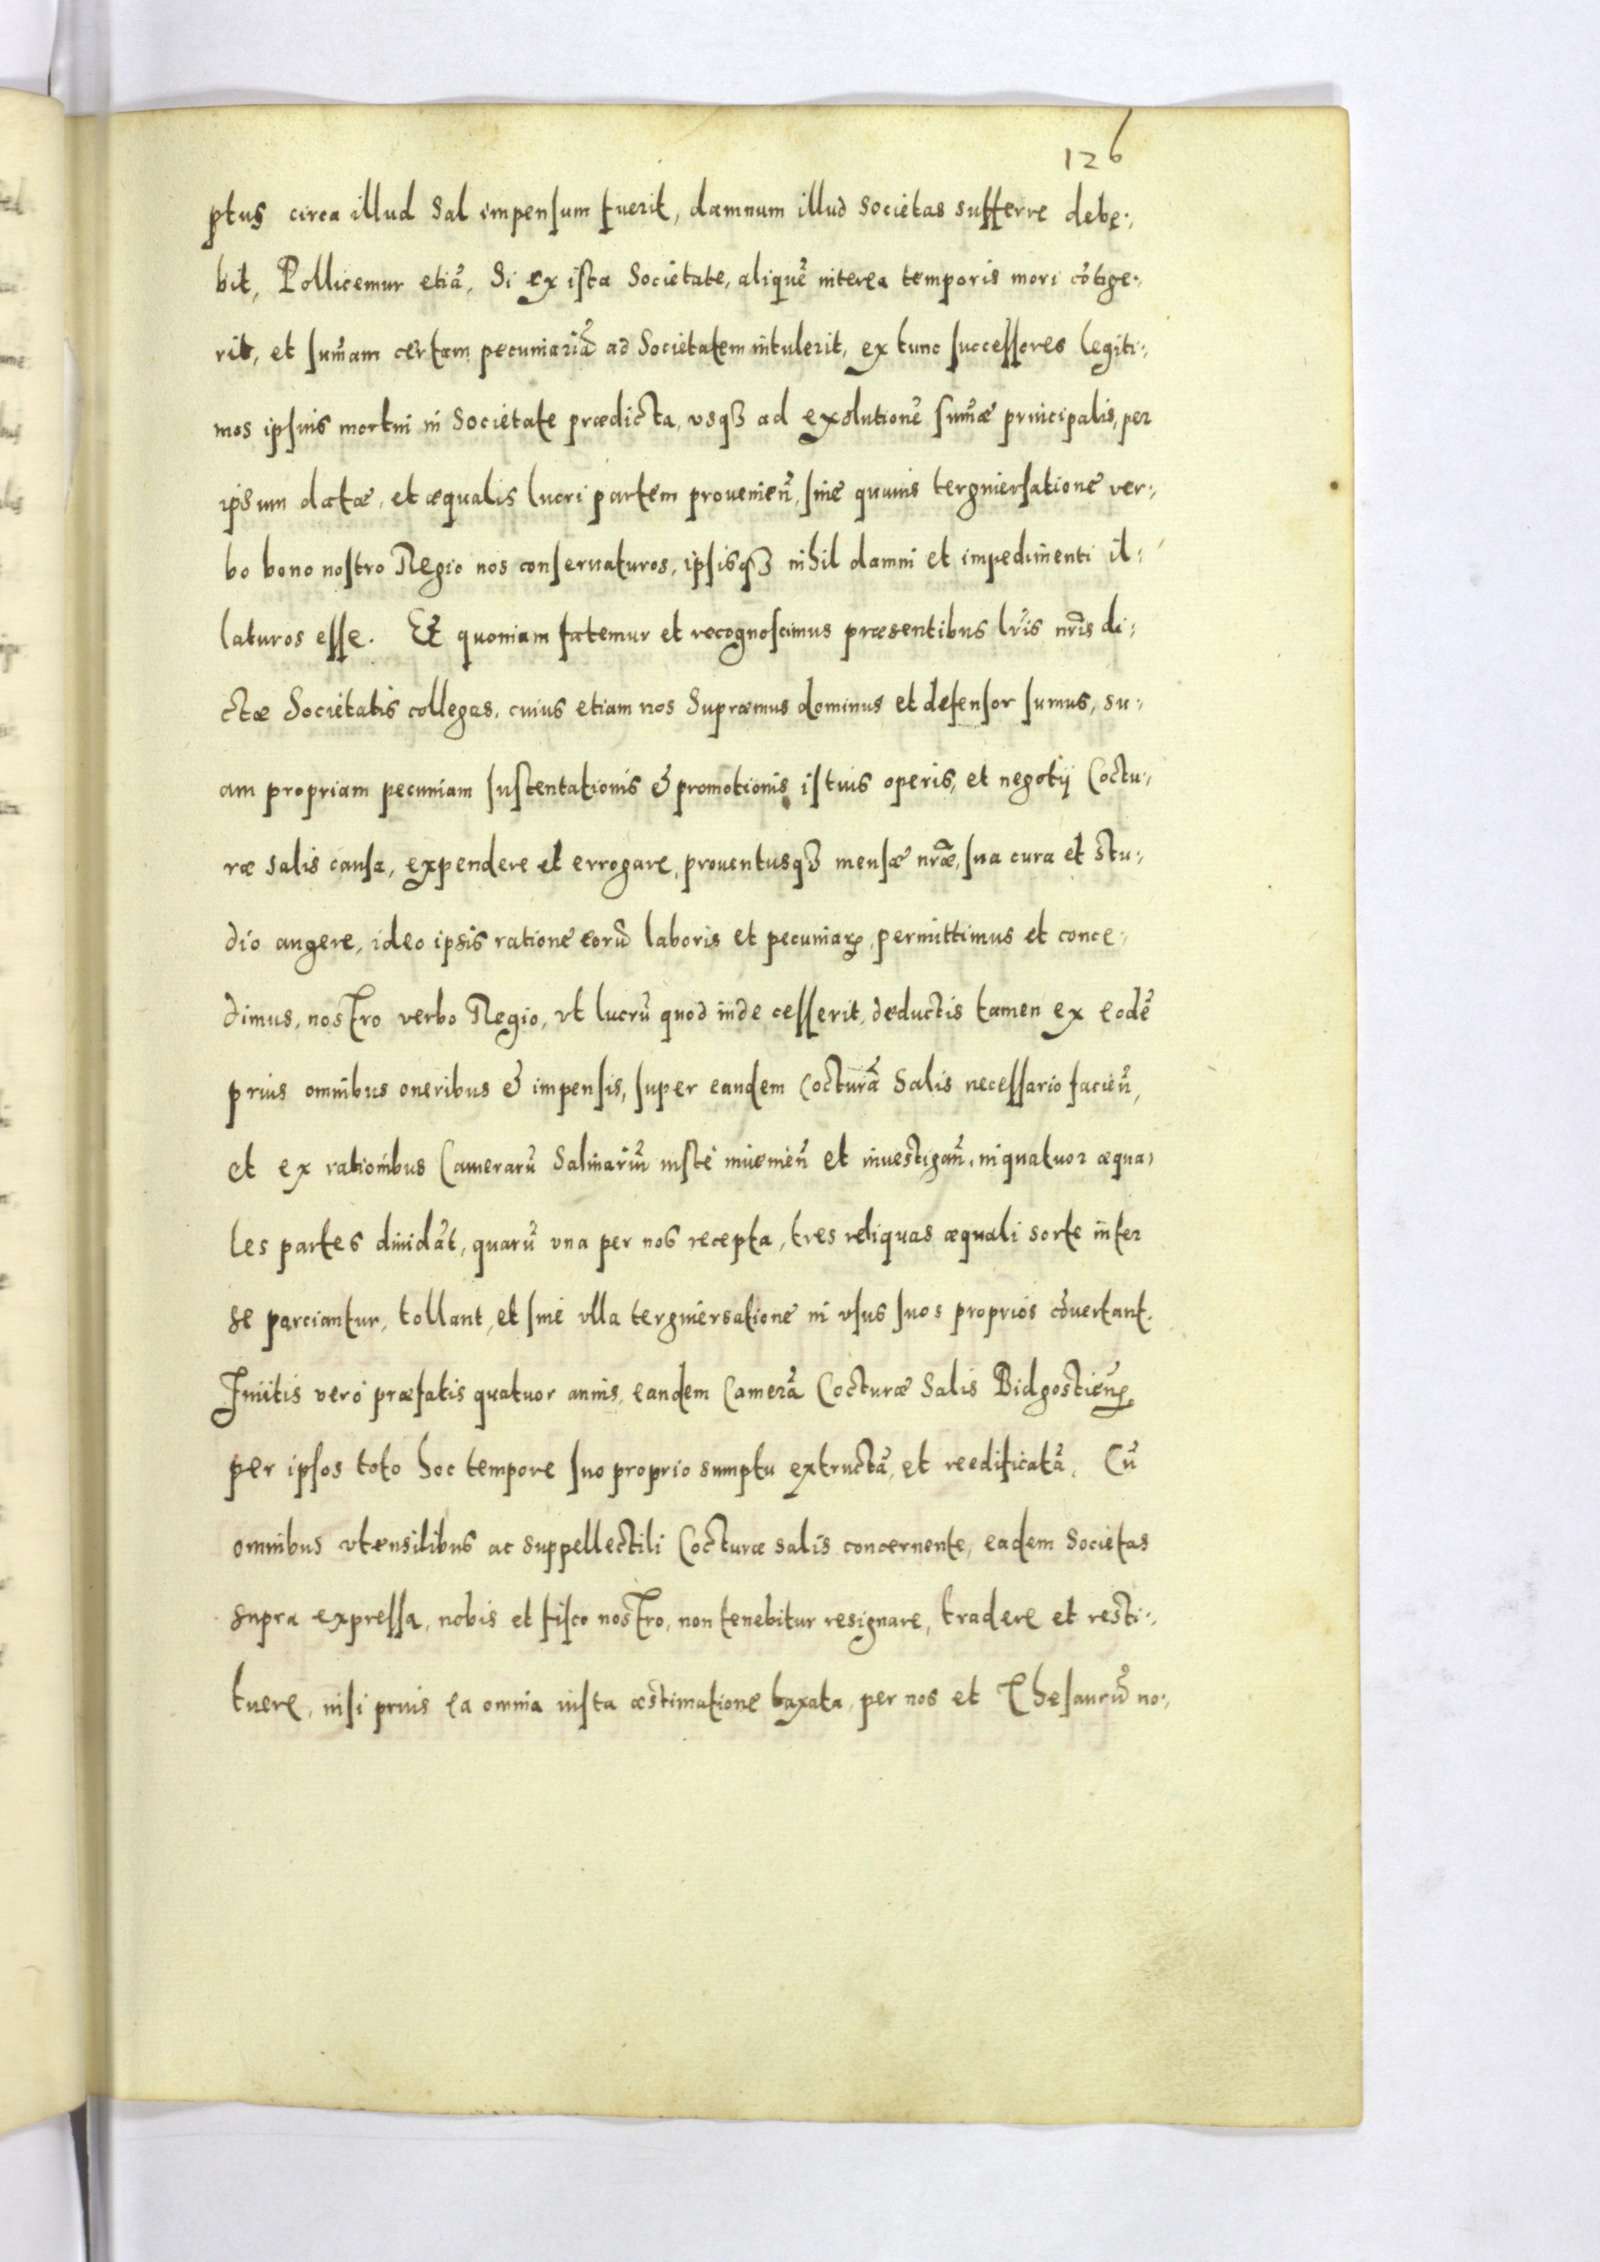 126
ptus circa illud Sal impensum fuerit, damnum illud Societas sufferre debe:
bit, Pollicemur etiã, Si ex ista Societate, aliquẽ interea temporis mori cõtige:
rit, et sum̃am certam pecuniariã ad Societatem intulerit, ex tunc successores legiti:
mos ipsius mortui in Societate prædicta, vsqȝ ad exolutionẽ sum̃æ principalis, per
ipsum datæ, et æqualis lucri partem prouenieñ, sine quauis tergiuersatione ver:
bo bono nostro Regio nos conseruaturos, ipsisqȝ nihil damni et impedimenti il:
laturos esse. Et quoniam fatemur et recognoscimus præsentibus lr̃is nr̃is di:
ctæ Societatis collegas, cuius etiam nos Supræmus dominus et defensor sumus, su:
am propriam pecuniam sustentationis & promotionis istius operis, et negotij Coctu:
ræ salis causa, expendere et errogare, prouentusqȝ mensæ nr̃æ, sua cura et stu:
dio augere, ideo ipsis ratione eorũ laboris et pecuniaꝝ, permittimus et conce:
dimus, nostro verbo Regio, vt lucrũ quod inde cesserit, deductis tamen ex eodẽ
prius omnibus oneribus & impensis, super eandem Cocturã Salis necessario facieñ,
et ex rationibus Camerarũ Salinariũ iustè inuenieñ et inuestigañ, in quatuor æqua:
les partes diuidãt, quarũ vna per nos recepta, tres reliquas æquali sorte inter
se parciantur, tollant, et sine vlla tergiuersatione in vsus suos proprios cõuertant.
Finitis verò præfatis quatuor annis, eandem Camerã Cocturæ Salis Bidgostieñ,
per ipsos toto hoc tempore suo proprio sumptu extructã, et reedificatã, Cũ
omnibus vtensilibus ac suppellectili Cocturæ salis concernente, eadem Societas
supra expressa, nobis et fisco nostro, non tenebitur resignare, tradere et resti:
tuere, nisi prius ea omnia iusta æstimatione taxata, per nos et Thesaurũ no: